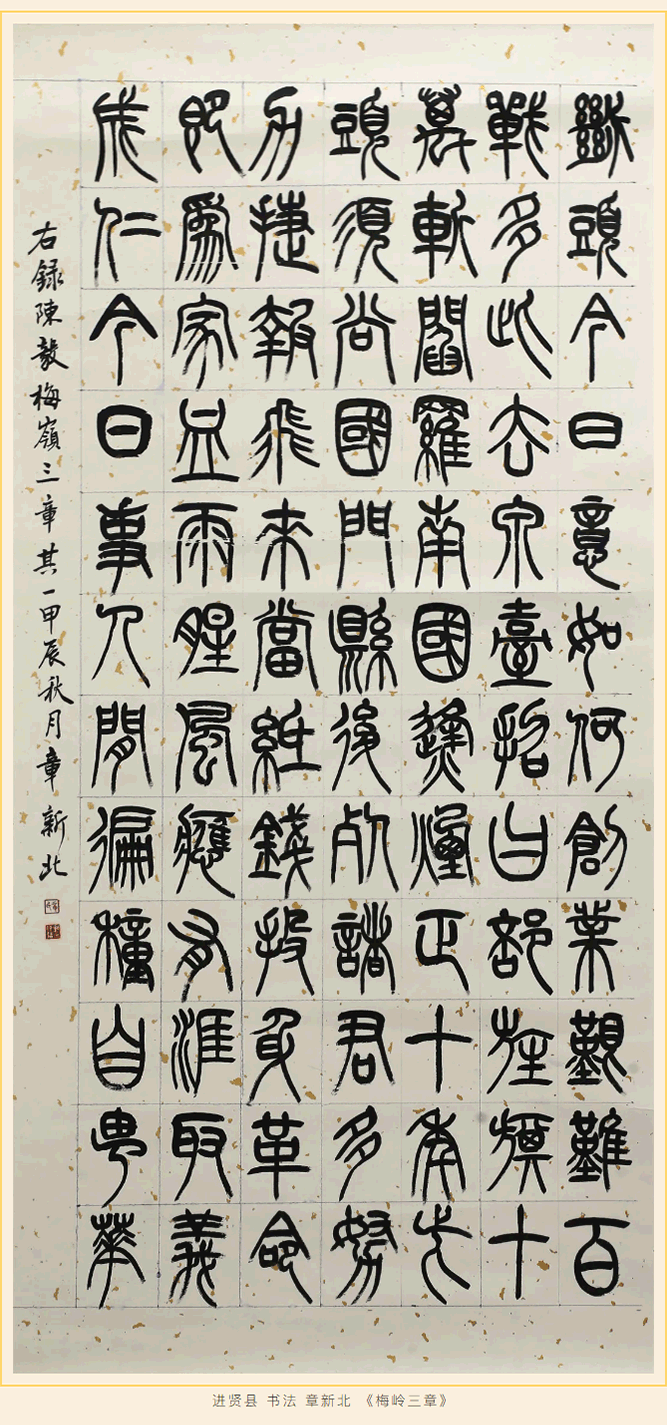 斷頭今日意如何創業艱難百
戰多此去泉臺招舊部旌旗十
萬斬閻羅南國烽煙正十年此
頭須向國門縣後死諸君多努
力捷報飛來當紙錢投身革命
即爲家血雨腥風應有涯取義
成仁今日事人間徧種自由華
右録陳毅梅嶺三章其一甲辰秋月章新北
进贤县 书法 章新北 《梅岭三章》